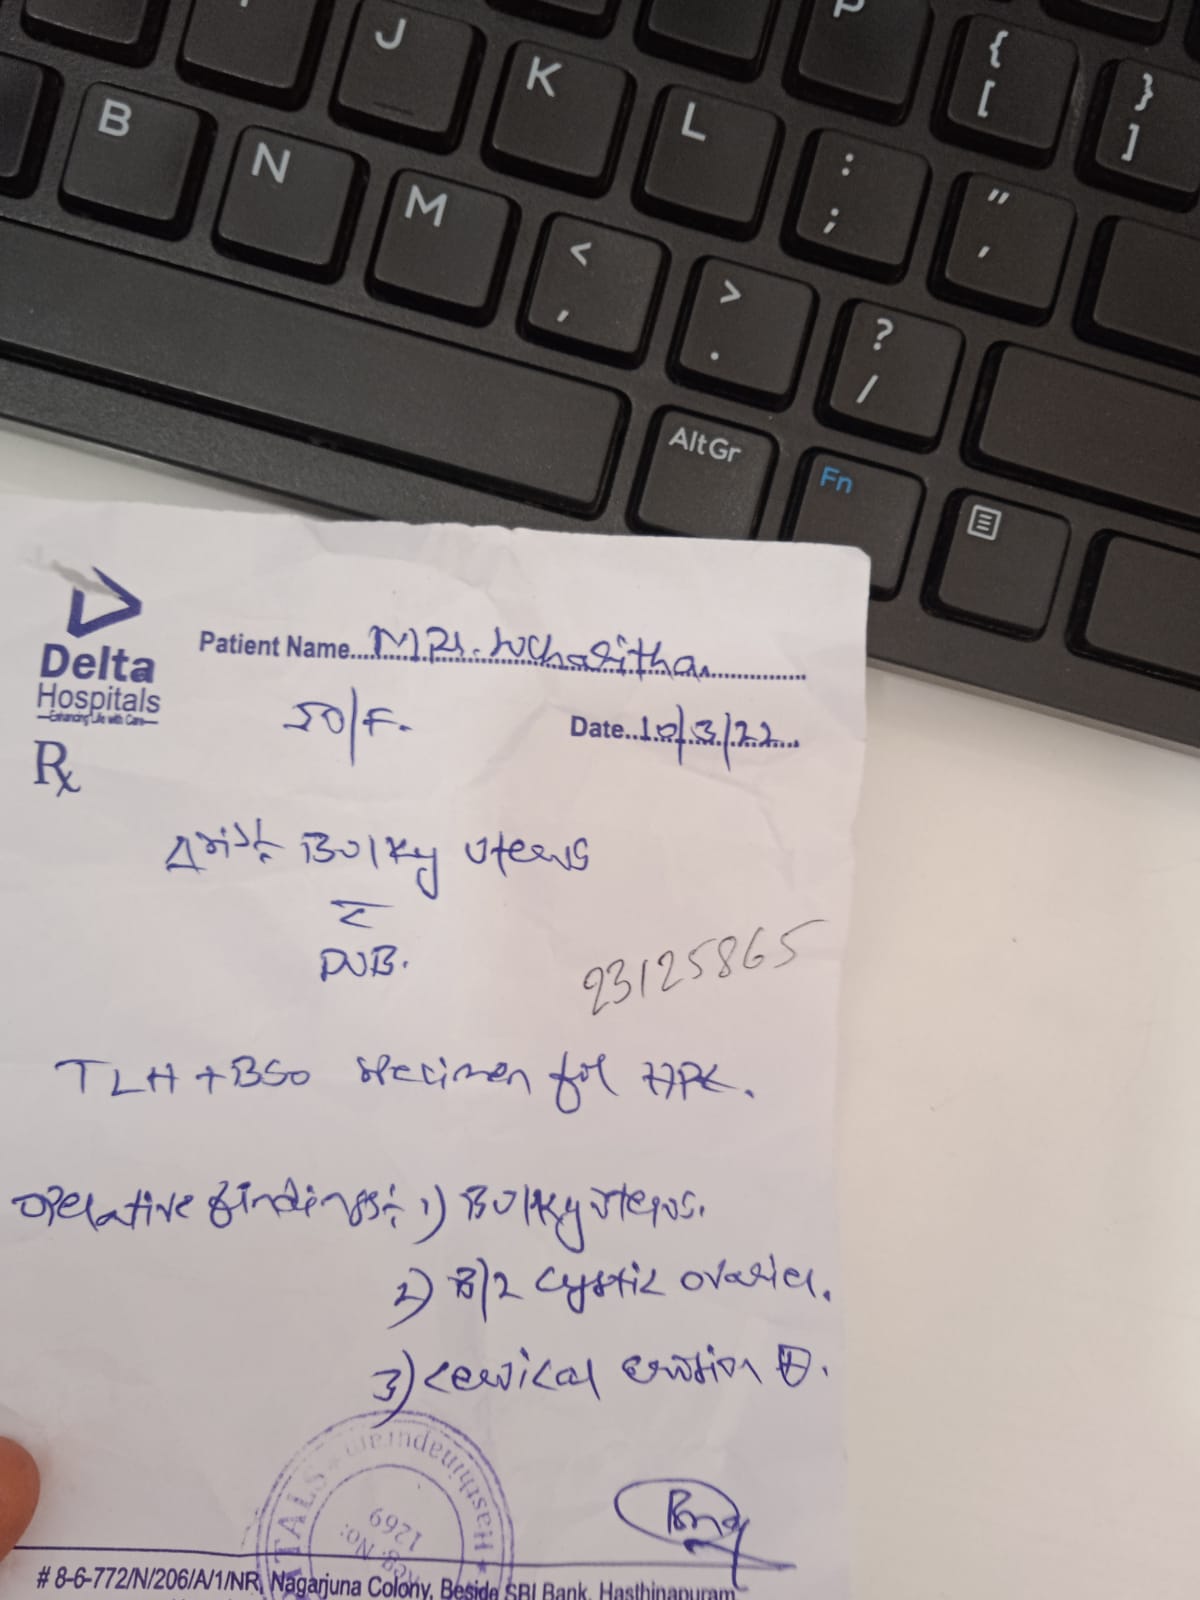 J
K
L
P
{
[
}
]
B
N
M
<
,
>
.
:
;
"
'
?
/
AltGr
Fn
Delta
Hospitals
Enhancing Life with Care
Patient Name.....MRs.
50/F.
Date..10/3/22
Rx
Bulky uterus
c̄
DUB.
23125865
TLH + BSO specimen for HPE.
operative findings:- 1) Bulky uterus.
2) B/L cystic ovaries.
3) cervical erosion ⊕.
Hasthinapuram
TALS
Reg. No:
1269
# 8-6-772/N/206/A/1/NR, Nagarjuna Colony, Beside SBI Bank, Hasthinapuram